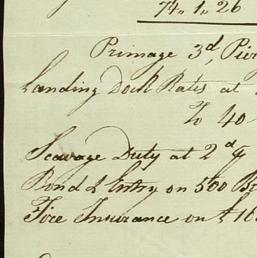 74,, 1,, 26
Primage 3d, Pier
Landing Dock Rates at
To 40
Scavage Duty at 2d
Bond & Entry on 500 B
Fire Insurance on £ 16